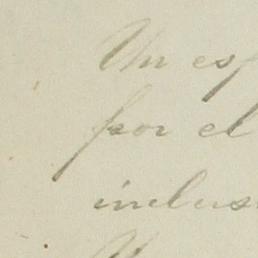 Un esp
por el
inclus